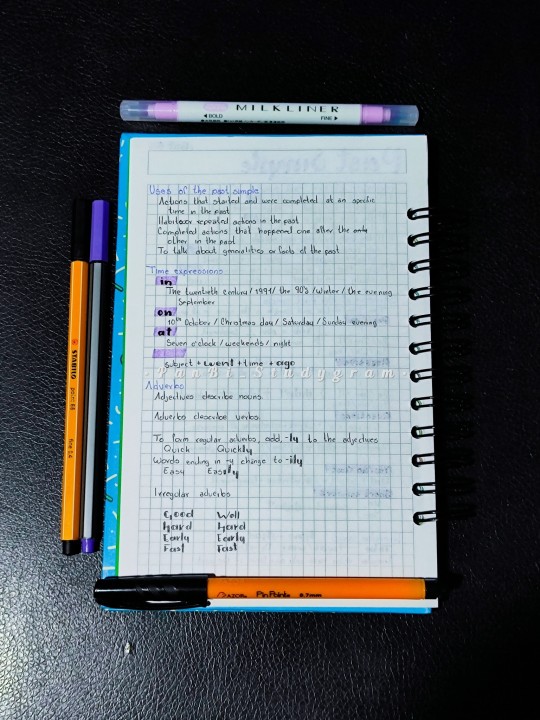 MILKLINER
◀BOLD FINE▶
Uses of the past simple
Actions that started and were completed at an specific
time in the past
Habits or repeated actions in the past
Completed actions that happened one after the
other in the past
To talk about generalities or facts of the past
Time expressions
in
The twentieth century / 1991 / the 90's / winter / the evening
September
on
10th October / Christmas day / Saturday / Sunday evening
at
Seven o'clock / weekends / night
Subject + went + time + ago
-PanBi_Studygram-
Adverbs
Adjectives describe nouns
Adverbs describe verbs
To form regular adverbs, add, -ly to the adjectives
Quick Quickly
Words ending in -y change to -ily
Easy Easily
Irregular adverbs
Good Well
Hard Hard
Early Early
Fast Fast
STABILO point 88 fine 0.4
AZOR Pin Point 0.7mm